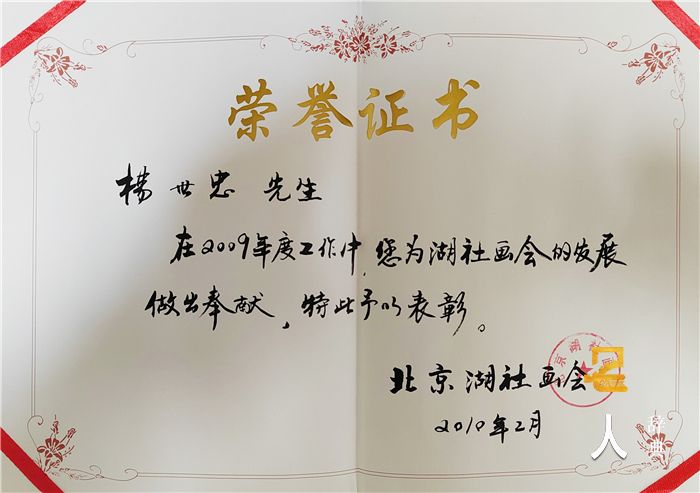 荣誉证书
楊世忠 先生
在2009年度工作中,您为湖社画会的发展
做出奉献,特此予以表彰。
北京湖社画会
2010年2月
人
辞典